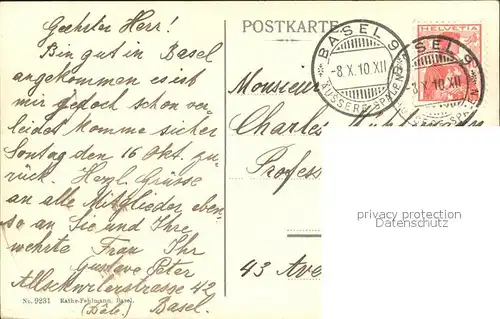 Geehrter Herr!
Bin gut in Basel
angekommen es ist
mir jedoch schon ver
leidet komme sicher
Sontag den 16 Okt. zu
rück. Herzl. Grüsse
an alle Mitglieder eben
so an Sie und Ihre
wehrte Frau Ihr
Gustave Peter
Allschwilerstrasse 42
Basel.
No. 9231 Rathe-Fehlmann, Basel.
POSTKARTE
BASEL 9
-8.X.10.XII
ÄUSSERE-SPALEN
HELVETIA
BASEL 9
8.X.10.XII
Monsieur
Charles
Profess
43 Ave
privacy protection
Datenschutz